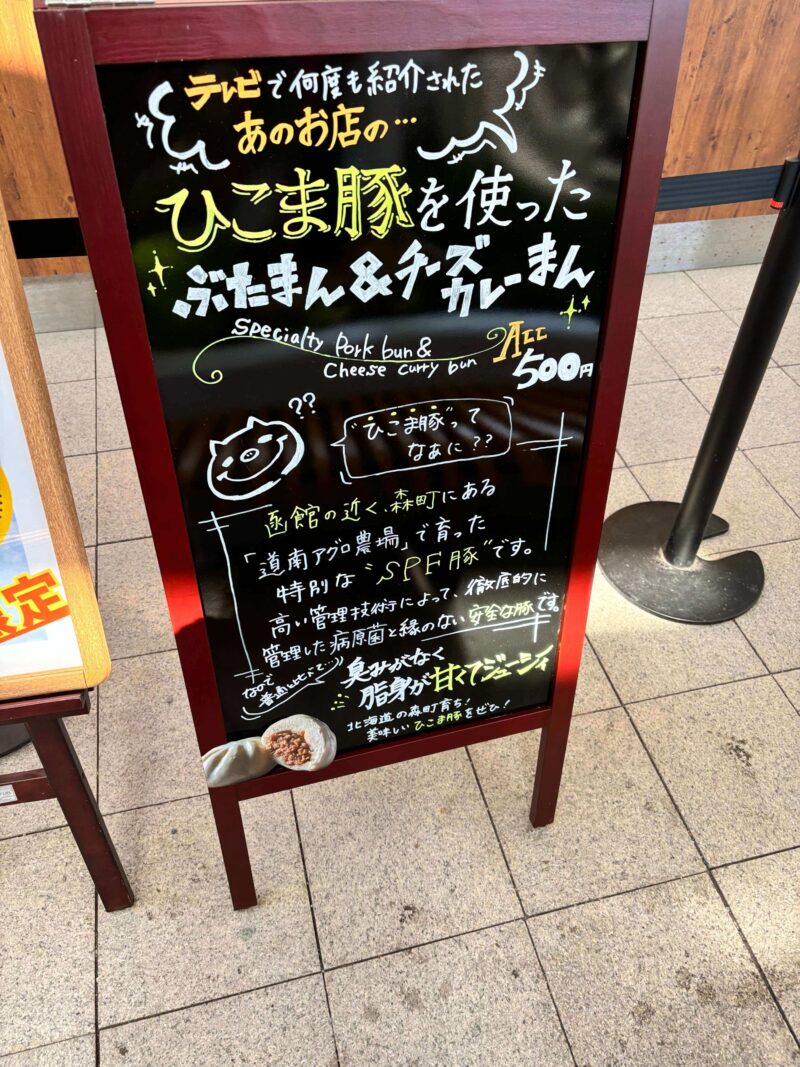 テレビで何度も紹介された
あのお店の…
ひこま豚を使った
ぶたまん&チーズカレーまん
Specialty Pork bun &
Cheese curry bun
ALL
500円
??
"ひこま豚"って
なぁに??
函館の近く、森町にある
「道南アグロ農場」で育った
特別な"SPF豚"です。
高い管理技術によって、徹底的に
管理した病原菌と縁のない安全な豚です。
なので
普通と比べて…
臭みがなく
脂身が甘くてジューシィ
北海道の森町育ち!
美味しいひこま豚をぜひ!
定